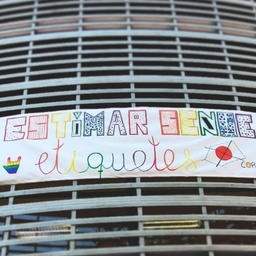 ESTIMAR SENSE
etiquetes
COR